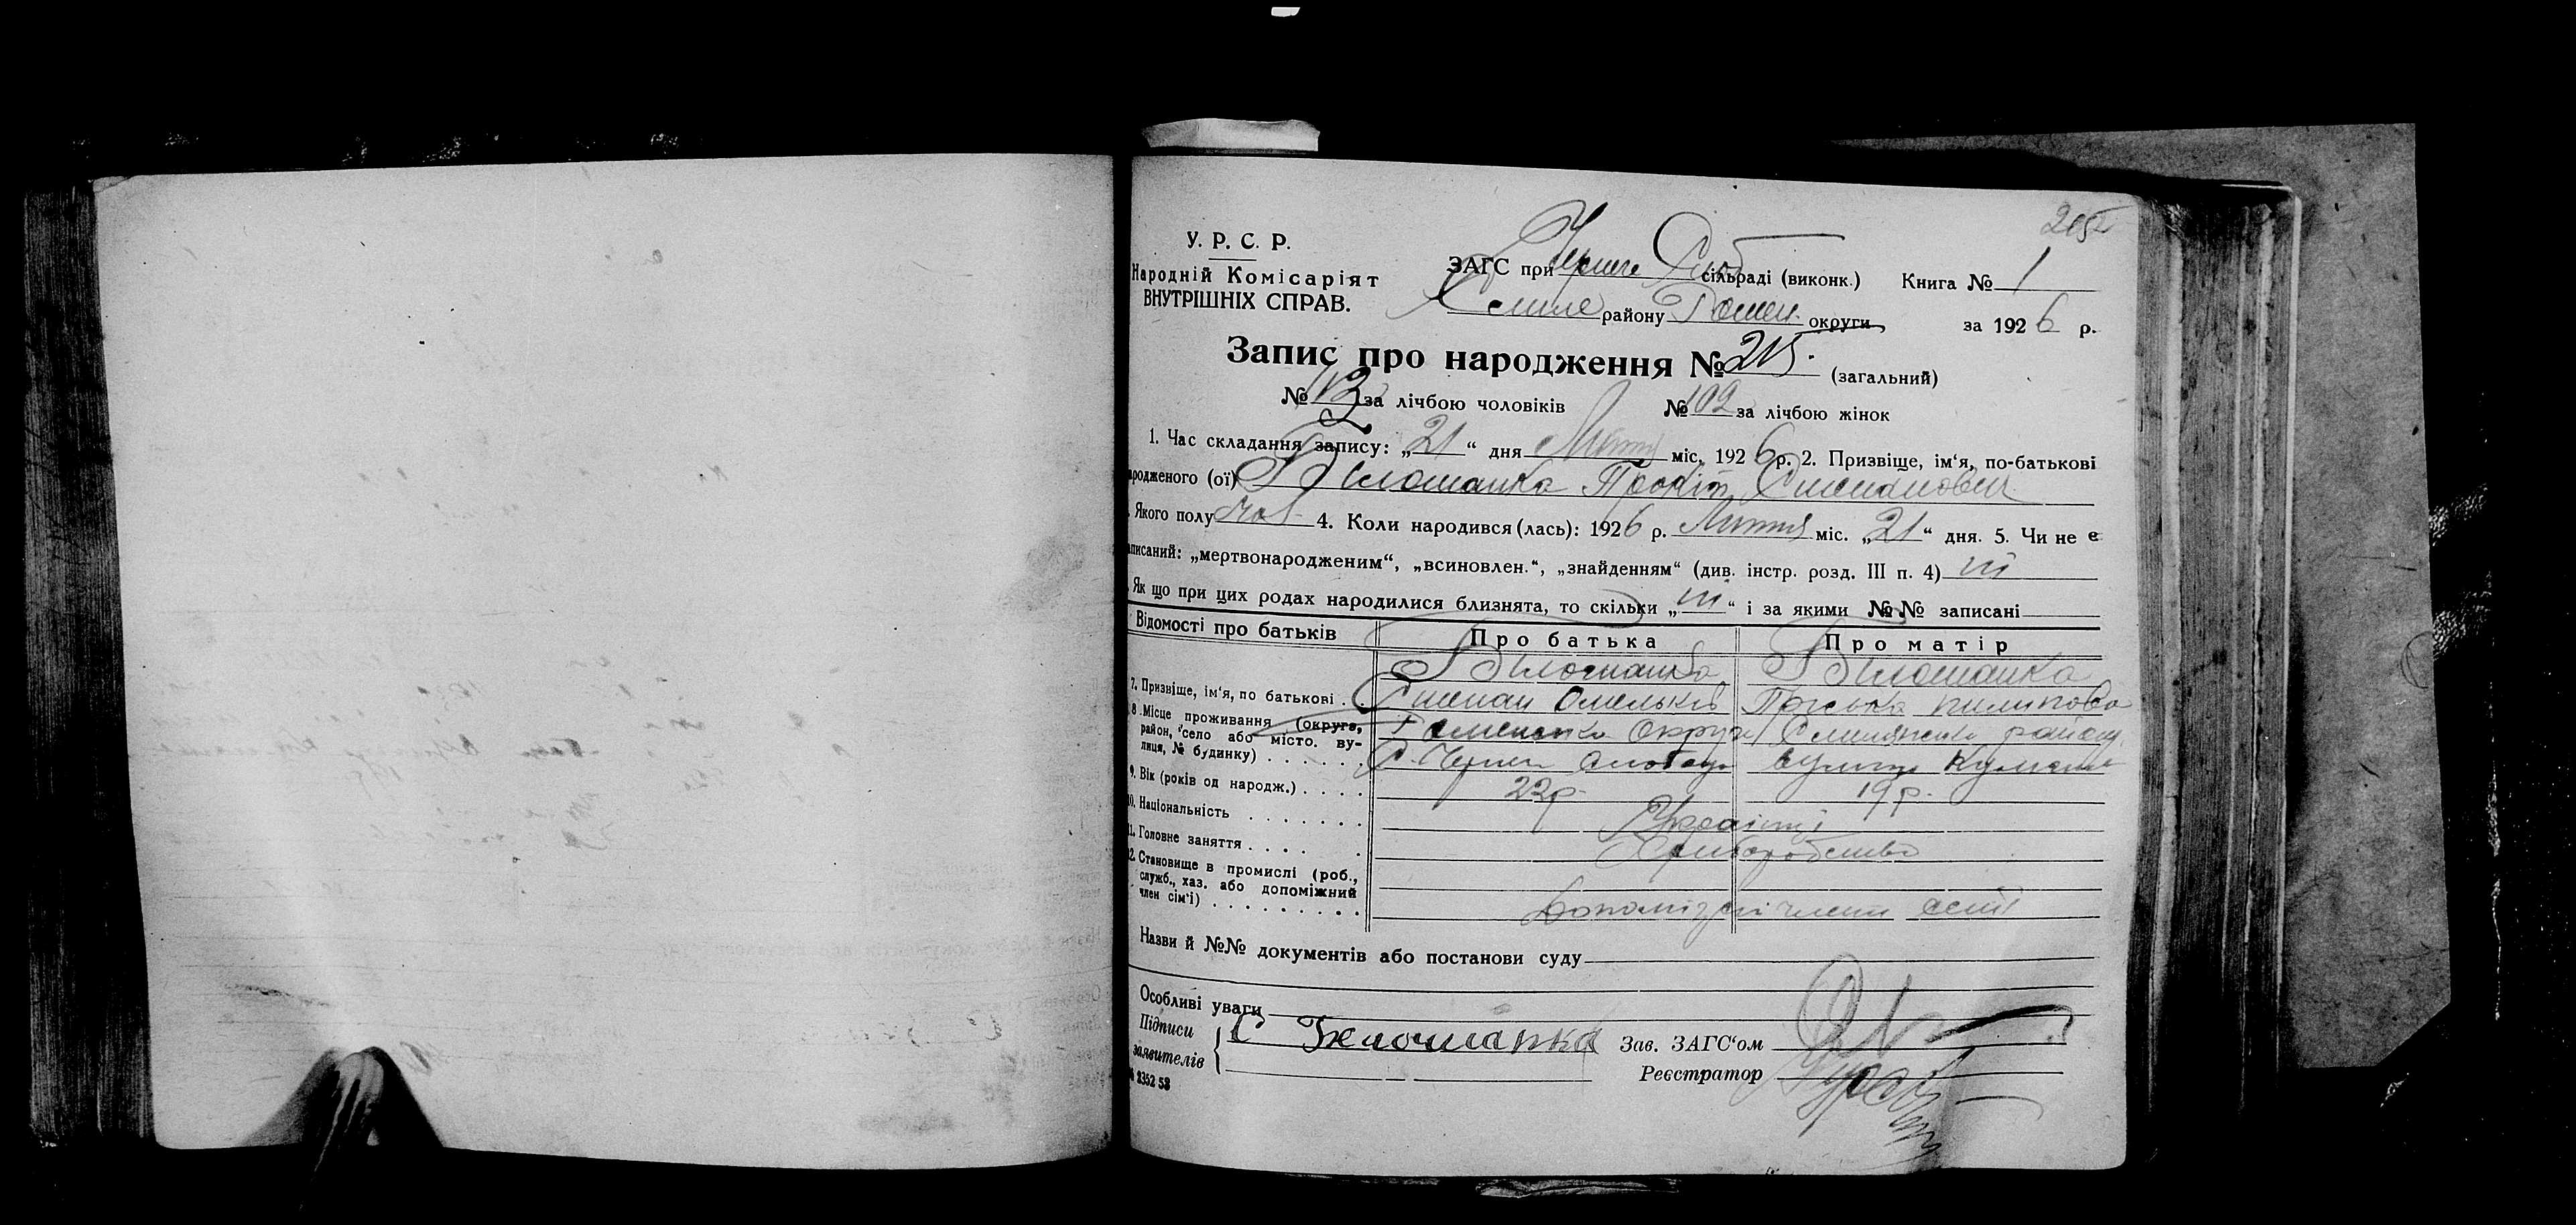 215
У. Р. С. Р.
Народній Комісаріят
ВНУТРІШНІХ СПРАВ.
ЗАГС при Черече Слоб сільраді (виконк.) Книга № 1
району Ромен. округи за 1926 р.
Запис про народження № 215. (загальний)
№ за лічбою чоловіків № 102 за лічбою жінок
1. Час складання запису: „21“ дня міс. 1926 р. 2. Призвіще, ім‘я, по-батькові
родженого (ої) Білошапка Прокіп Степанович
Якого полу чол 4. Коли народився (лась): 1926 р. міс. „21“ дня. 5. Чи не є
записаний: „мертвонародженим“, „всиновлен.“, „знайденням“ (див. інстр. розд. III п. 4) ні
Як що при цих родах народилися близнята, то скільки „ні“ і за якими №№ записані
Відомості про батьків Про батька Про матір
Білошапка Білошапка
7. Призвіще, ім‘я, по батькові . . Степан Омельків Пріська пилипова
8. Місце проживання (округа, район, село або місто. вулиця, № будинку) . . . . . . Роменська Округа району
С. Черн Слобода вулиця
9. Вік (років од народж.) . . . . 22р. 19 р.
10. Національність . . . . . . . Українці
11. Головне заняття . . . . . Хліборобство
12. Становище в промислі (роб.,
служб., хаз. або допоміжний
член сім‘ї) . . . . . . . . . члени сем‘ї
Назви й №№ документів або постанови суду
Особливі уваги
Підписи
заявителів { С Білошапка Зав. ЗАГС‘ом
Реєстратор
2352 53